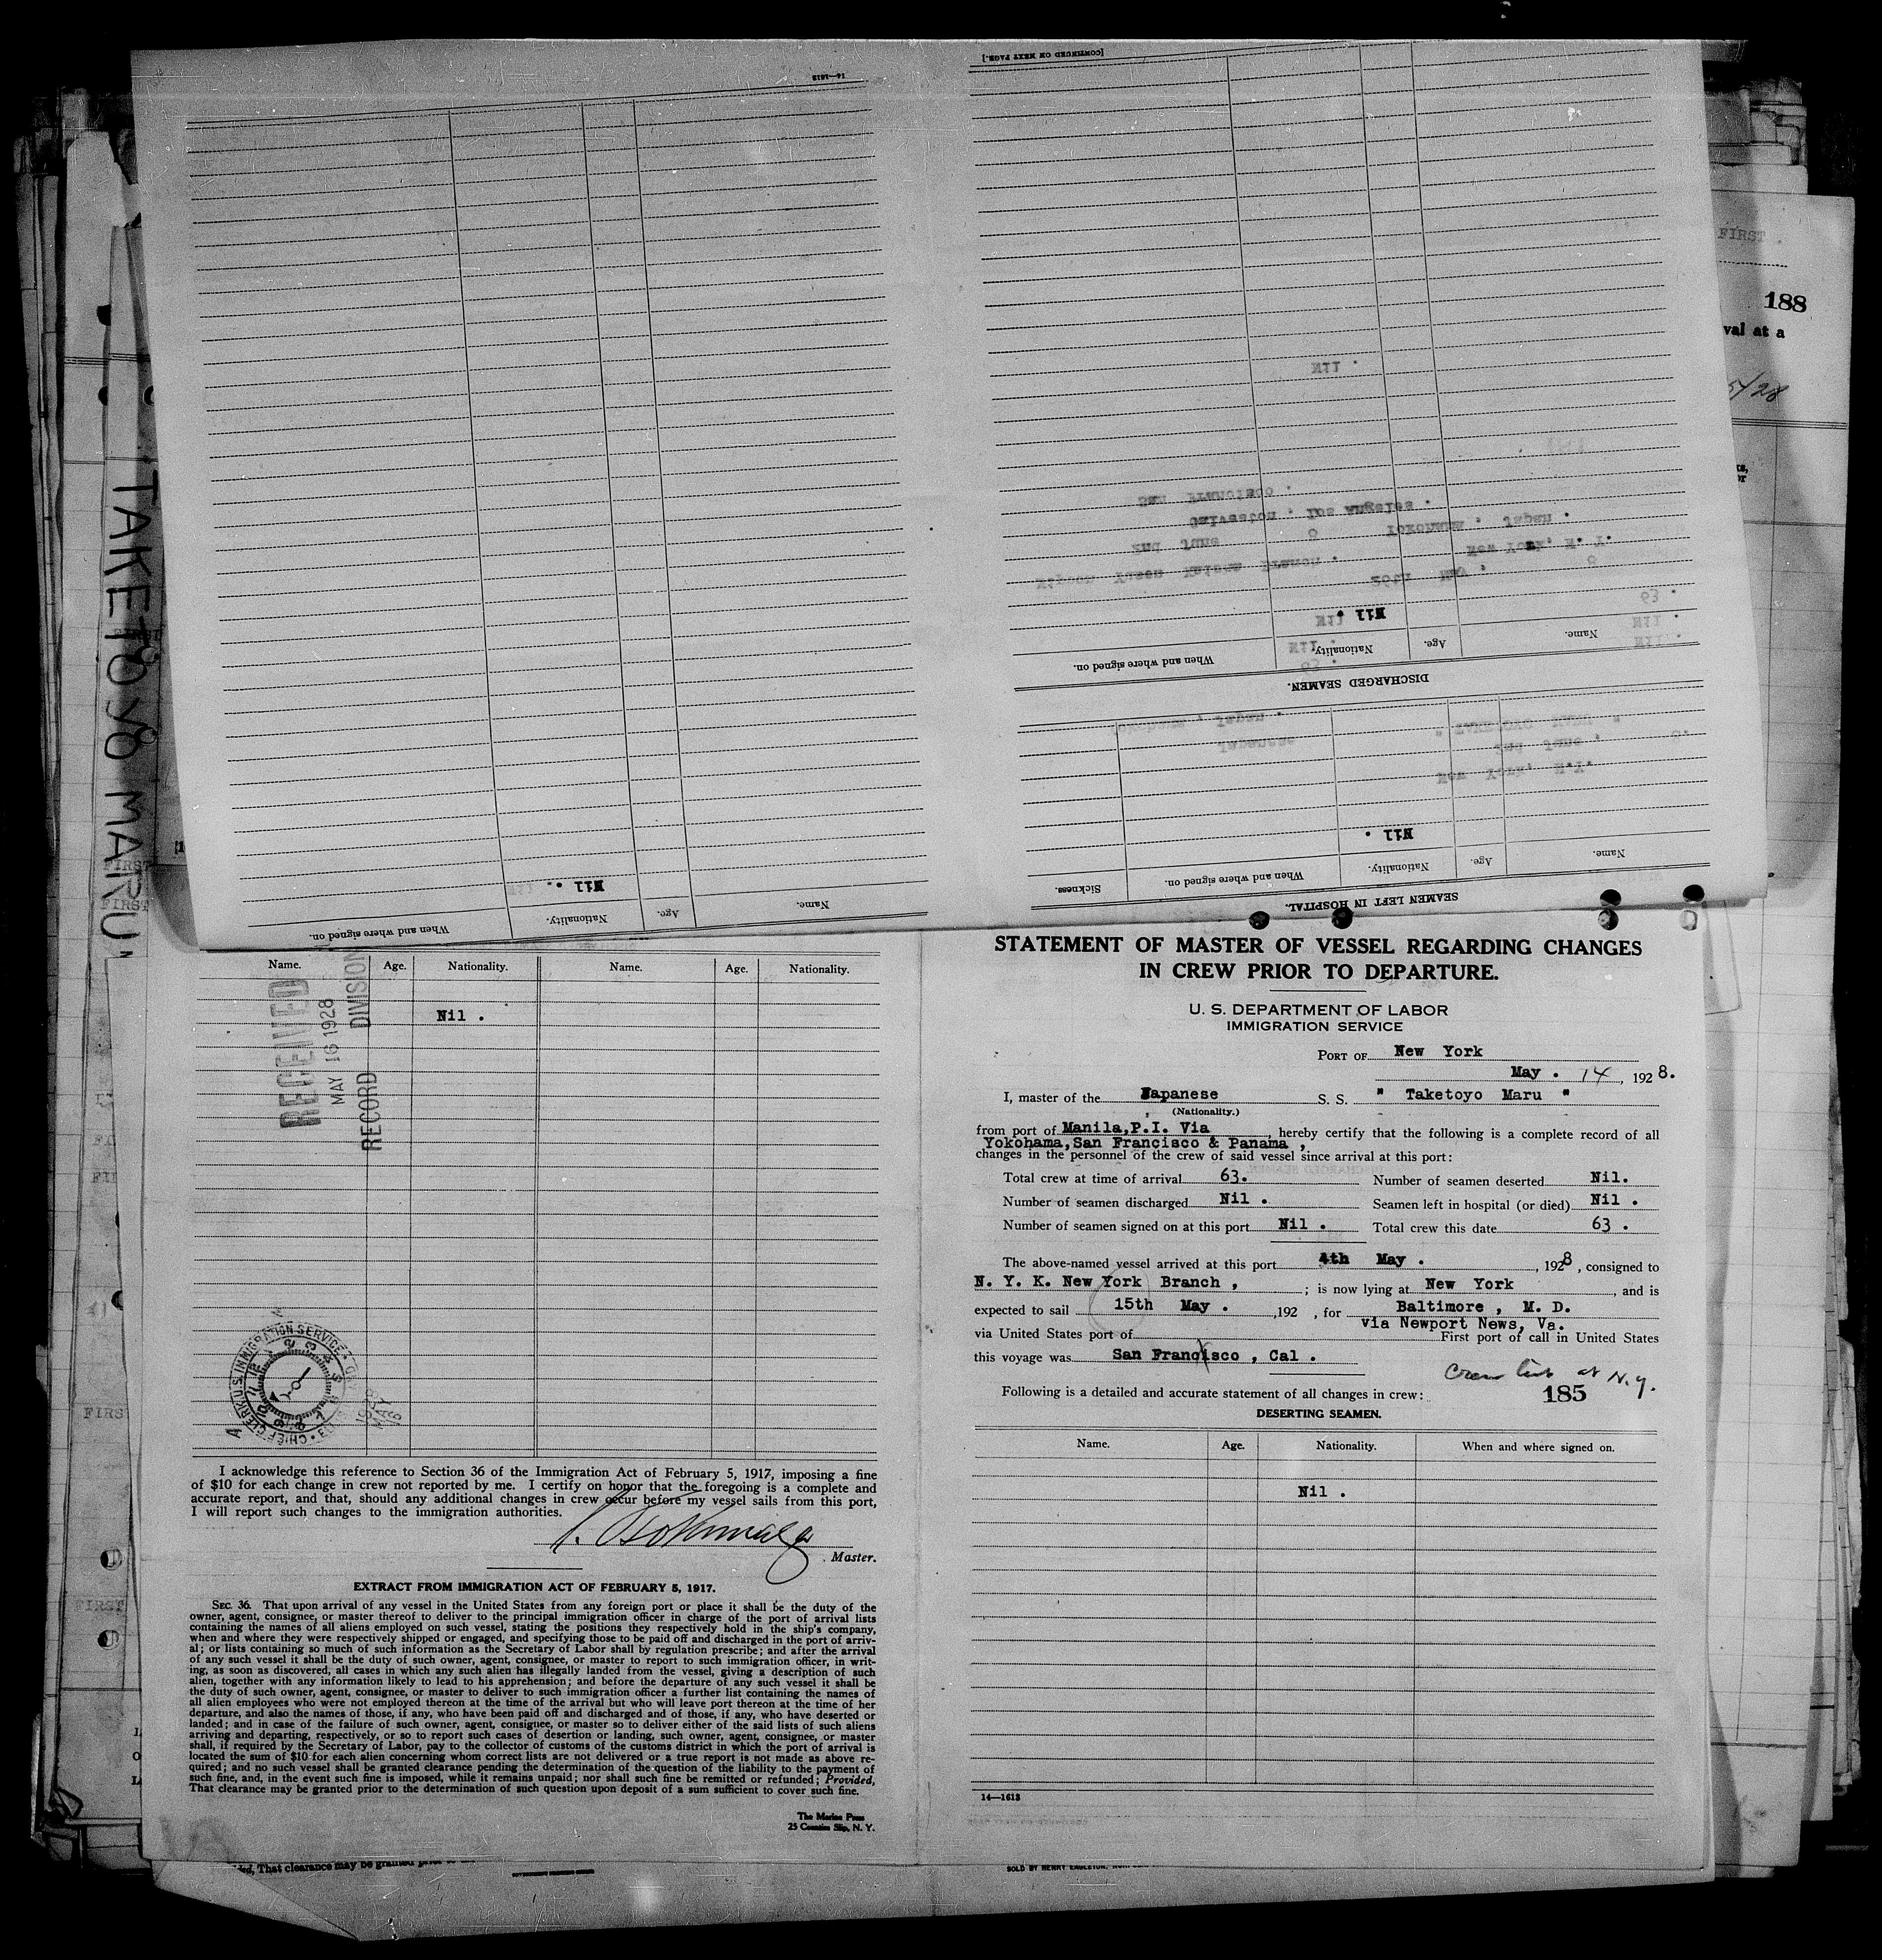 [CONTINUED ON NEXT PAGE.]
14—1613
FIRST
188
val at a
5/28
"TAKETOYO MARU"
Nil .
Name. Age. Nationality. When and where signed on.
DISCHARGED SEAMEN.
Nil .
Name. Age. Nationality. When and where signed on. Sickness.
SEAMEN LEFT IN HOSPITAL.
Nil .
Name. Age. Nationality. When and where signed on.
FIRST
FIRST
FIRST
Name. Age. Nationality. Name. Age. Nationality.
Nil .
RECEIVED
MAY 16 1928
RECORD DIVISION
I acknowledge this reference to Section 36 of the Immigration Act of February 5, 1917, imposing a fine
of $10 for each change in crew not reported by me. I certify on honor that the foregoing is a complete and
accurate report, and that, should any additional changes in crew occur before my vessel sails from this port,
I will report such changes to the immigration authorities.
Master.
EXTRACT FROM IMMIGRATION ACT OF FEBRUARY 5, 1917.
SEC. 36. That upon arrival of any vessel in the United States from any foreign port or place it shall be the duty of the
owner, agent, consignee, or master thereof to deliver to the principal immigration officer in charge of the port of arrival lists
containing the names of all aliens employed on such vessel, stating the positions they respectively hold in the ship's company,
when and where they were respectively shipped or engaged, and specifying those to be paid off and discharged in the port of arriv-
al; or lists containing so much of such information as the Secretary of Labor shall by regulation prescribe; and after the arrival
of any such vessel it shall be the duty of such owner, agent, consignee, or master to report to such immigration officer, in writ-
ing, as soon as discovered, all cases in which any such alien has illegally landed from the vessel, giving a description of such
alien, together with any information likely to lead to his apprehension; and before the departure of any such vessel it shall be
the duty of such owner, agent, consignee, or master to deliver to such immigration officer a further list containing the names of
all alien employees who were not employed thereon at the time of the arrival but who will leave port thereon at the time of her
departure, and also the names of those, if any, who have been paid off and discharged and of those, if any, who have deserted or
landed; and in case of the failure of such owner, agent, consignee, or master so to deliver either of the said lists of such aliens
arriving and departing, respectively, or so to report such cases of desertion or landing, such owner, agent, consignee, or master
shall, if required by the Secretary of Labor, pay to the collector of customs of the customs district in which the port of arrival is
located the sum of $10 for each alien concerning whom correct lists are not delivered or a true report is not made as above re-
quired; and no such vessel shall be granted clearance pending the determination of the question of the liability to the payment of
such fine, and, in the event such fine is imposed, while it remains unpaid; nor shall such fine be remitted or refunded; Provided,
That clearance may be granted prior to the determination of such question upon deposit of a sum sufficient to cover such fine.
The Marine Press
25 Coenties Slip, N. Y.
STATEMENT OF MASTER OF VESSEL REGARDING CHANGES
IN CREW PRIOR TO DEPARTURE.
U. S. DEPARTMENT OF LABOR
IMMIGRATION SERVICE
PORT OF New York
May . 14, 1928.
I, master of the Japanese S. S. " Taketoyo Maru "
(Nationality.)
from port of Manila,P.I. Via , hereby certify that the following is a complete record of all
Yokohama,San Francisco & Panama ,
changes in the personnel of the crew of said vessel since arrival at this port:
Total crew at time of arrival 63. Number of seamen deserted Nil.
Number of seamen discharged Nil . Seamen left in hospital (or died) Nil .
Number of seamen signed on at this port Nil . Total crew this date 63 .
The above-named vessel arrived at this port 4th May . , 1928 , consigned to
N. Y. K. New York Branch , ; is now lying at New York , and is
expected to sail 15th May . ,192 , for Baltimore , M. D.
via Newport News, Va.
via United States port of First port of call in United States
this voyage was San Francisco , Cal .
Crew list at N.Y.
Following is a detailed and accurate statement of all changes in crew: 185
DESERTING SEAMEN.
Name. Age. Nationality. When and where signed on.
Nil .
14—1613
FIRS
FIRST
ded, That clearance may be granted prior to the
SOLD BY HENRY